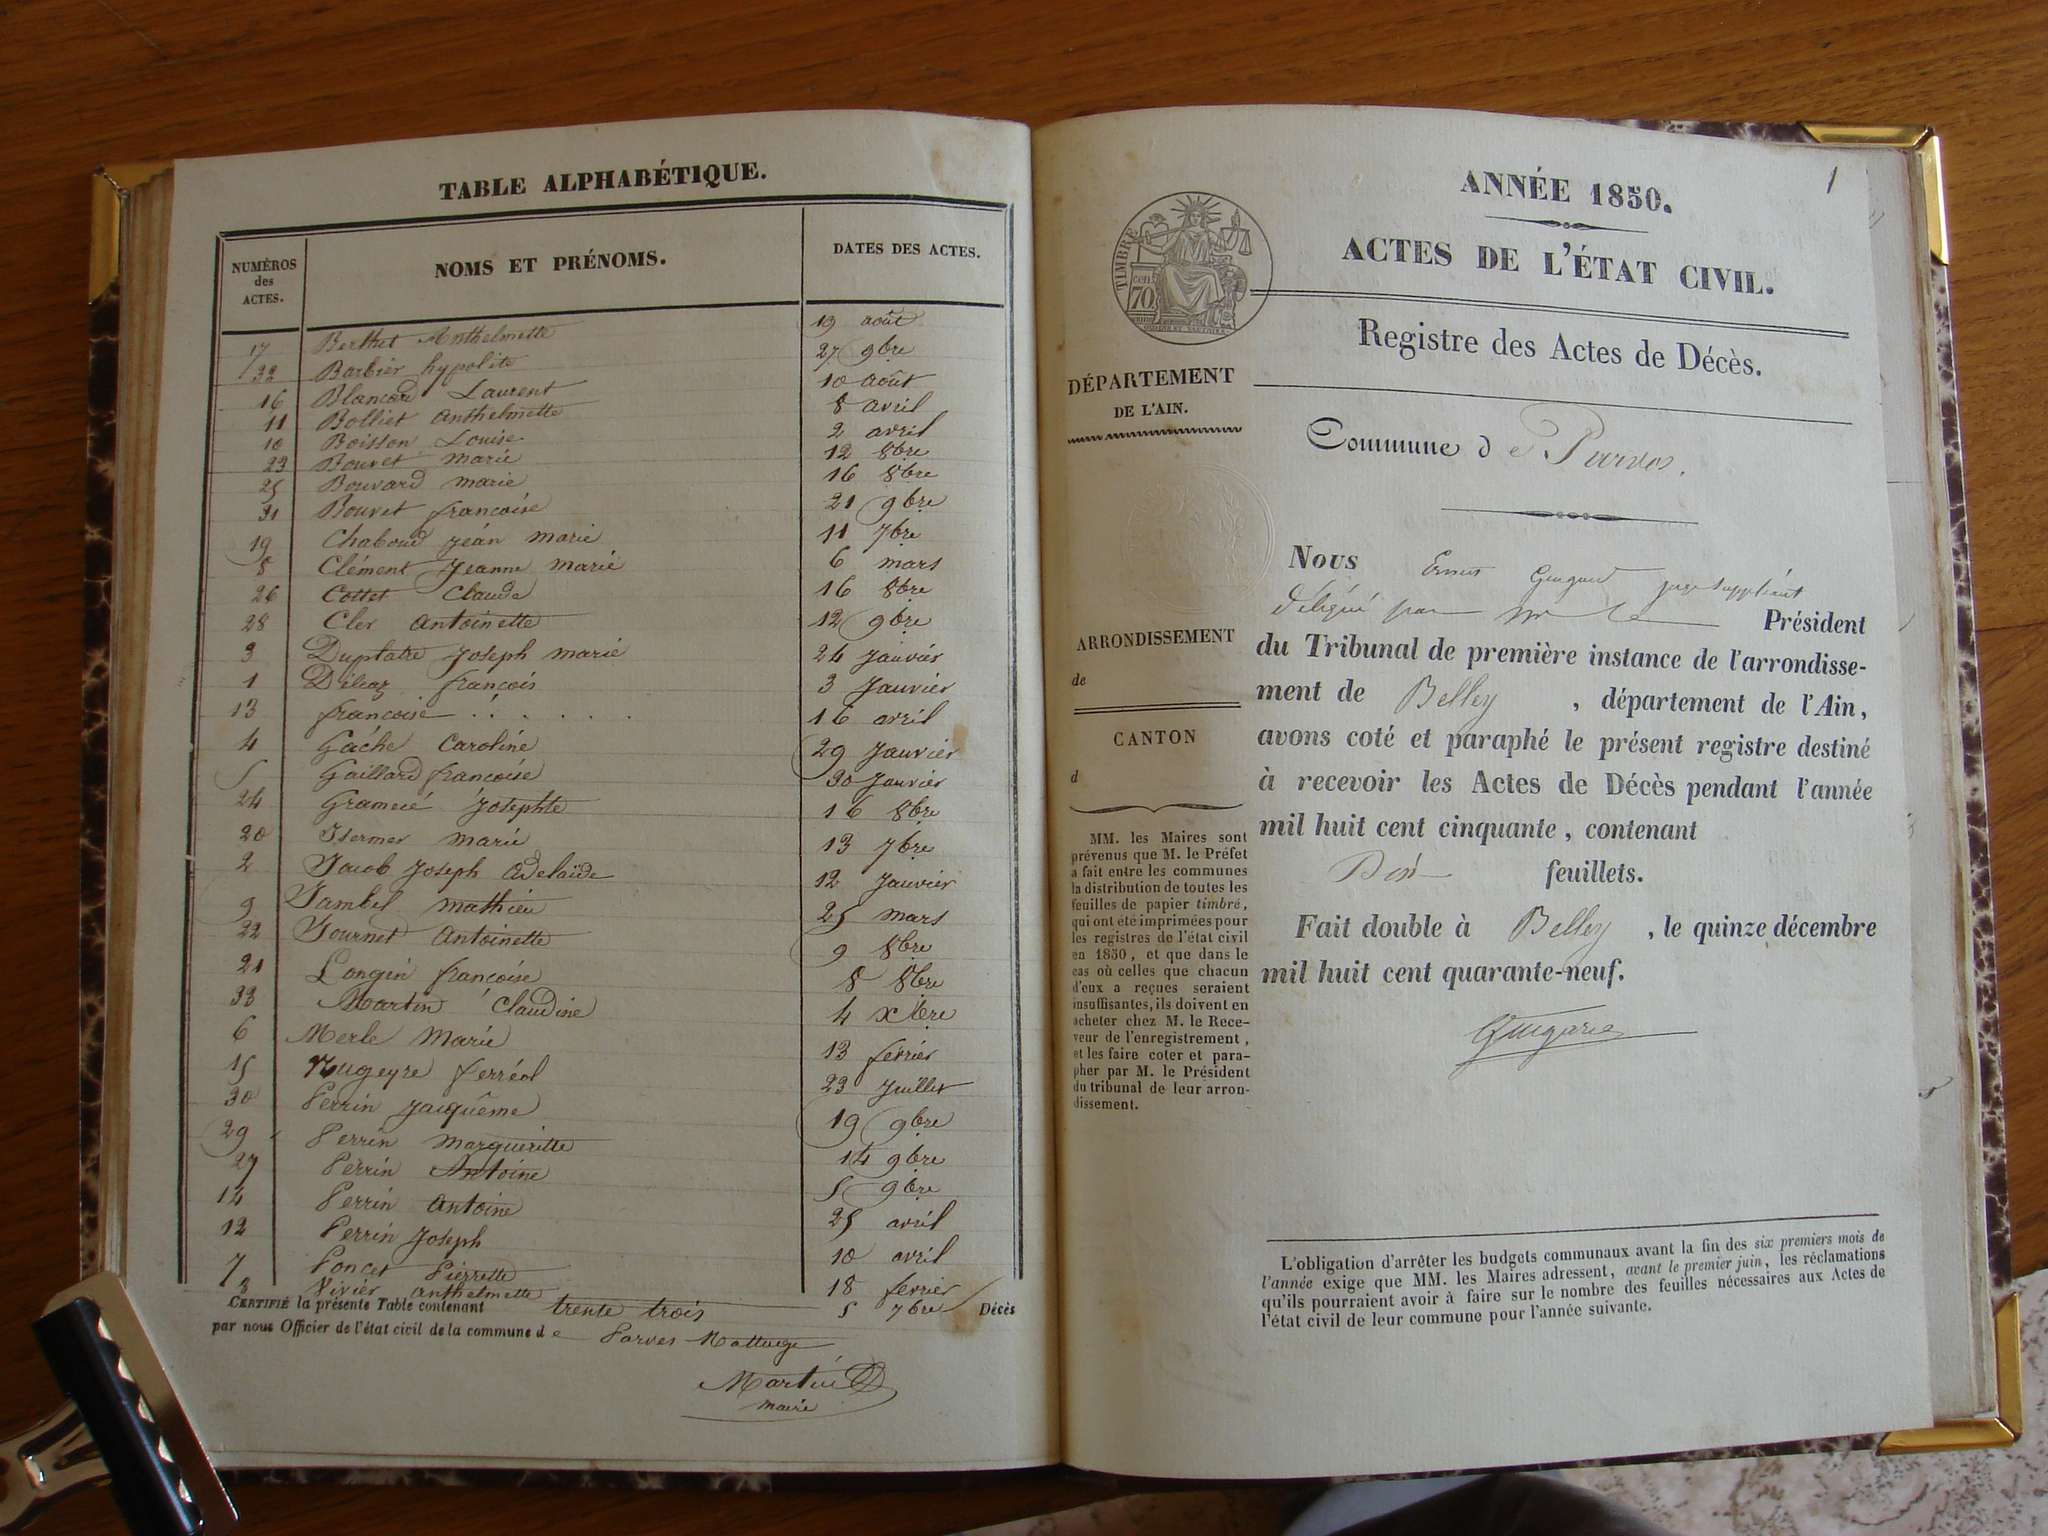 TABLE ALPHABÉTIQUE.
NUMÉROS des ACTES. NOMS ET PRÉNOMS. DATES DES ACTES.
17 Berthet Anthelmette 19 août
32 Barbier hypolite 27 9bre
16 Blancard Laurent 10 août
11 Bolliet anthelmette 8 avril
10 Boisson Louise 2 avril
23 Bouvet marie 12 8bre
25 Bouvard marie 16 8bre
31 Bouvet francoise 21 9bre
19 Chaboud jéan marie 11 7bre
8 Clément Jeanne marie 6 mars
26 Cottet Claude 16 8bre
28 Cler antoinette 12 9bre
3 Joseph marie 24 Janvier
1 françois 3 Janvier
13 francoise . . . . . . 16 avril
4 Gâche Caroline 29 Janvier
5 Gaillard francoise 30 Janvier
24 Josephte 16 8bre
20 marie 13 7bre
2 Jacob Joseph adelaïde 12 Janvier
9 Jambel mathieu 25 mars
22 Journet antoinette 9 8bre
21 Longin françoise 8 8bre
33 Martin Claudine 4 xbre
6 Merle Marie 13 fevrier
15 Nugeyre ferréol 23 Juillet
30 Perrin Jacquême 19 9bre
29 Perrin margueritte 14 9bre
27 Perrin Antoine 5 9bre
14 Perrin antoine 25 avril
12 Perrin Joseph 10 avril
7 Poncet Pierrette 18 fevrier
Vivier anthelmette 5 7bre
CERTIFIÉ la présente Table contenant trente trois Décès
par nous Officier de l'état civil de la commune de Parves
Martin
maire
1
ANNÉE 1850.
ACTES DE L'ÉTAT CIVIL.
Registre des Actes de Décès.
TIMBRE
70
DÉPARTEMENT
DE L'AIN.
Commune de Parves.
Nous Ernest juge suppléant
délégué par mr le Président
ARRONDISSEMENT
de
du Tribunal de première instance de l'arrondisse-
ment de Belley , département de l'Ain,
CANTON
d
avons coté et paraphé le présent registre destiné
à recevoir les Actes de Décès pendant l'année
mil huit cent cinquante, contenant
feuillets.
Fait double à Belley , le quinze décembre
mil huit cent quarante-neuf.
MM. les Maires sont
prévenus que M. le Préfet
a fait entre les communes
la distribution de toutes les
feuilles de papier timbré,
qui ont été imprimées pour
les registres de l'état civil
en 1850, et que dans le
cas où celles que chacun
d'eux a reçues seraient
insuffisantes, ils doivent en
acheter chez M. le Rece-
veur de l'enregistrement,
et les faire coter et para-
pher par M. le Président
du tribunal de leur arron-
dissement.
L'obligation d'arrêter les budgets communaux avant la fin des six premiers mois de
l'année exige que MM. les Maires adressent, avant le premier juin, les réclamations
qu'ils pourraient avoir à faire sur le nombre des feuilles nécessaires aux Actes de
l'état civil de leur commune pour l'année suivante.